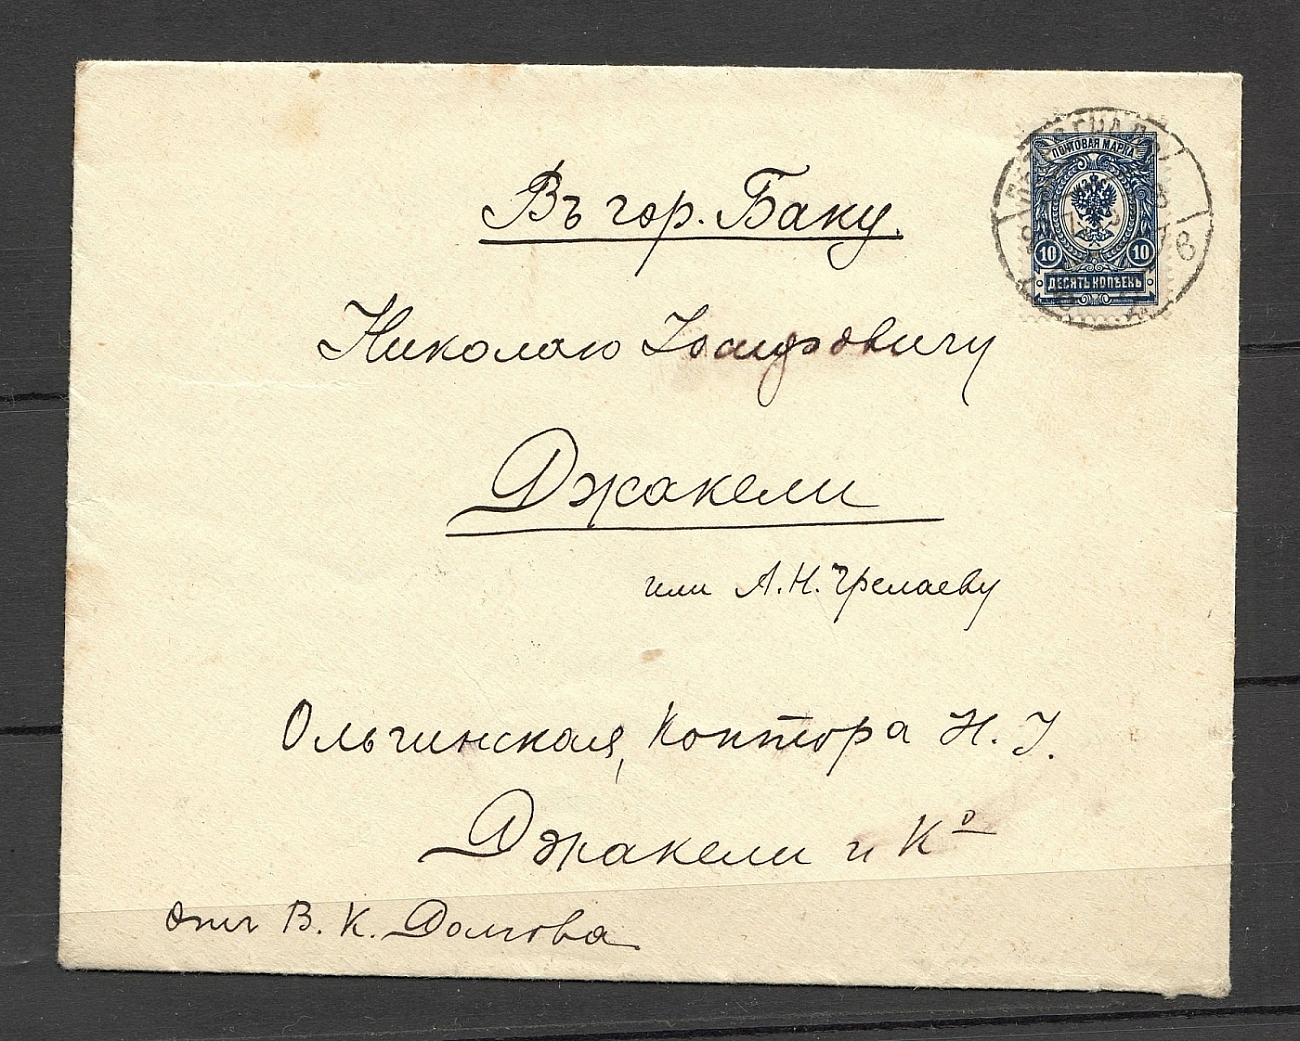 Въ гор. Баку.
Николаю Іосифовичу
Джакели
или А. Н.
Ольгинская, Контора Н. І.
Джакели и Ко
отъ В. К. Долгова
ПЕТРОГРАДЪ
ПОЧТОВАЯ МАРКА
10 10
ДЕСЯТЬ КОПѢЕКЪ
в